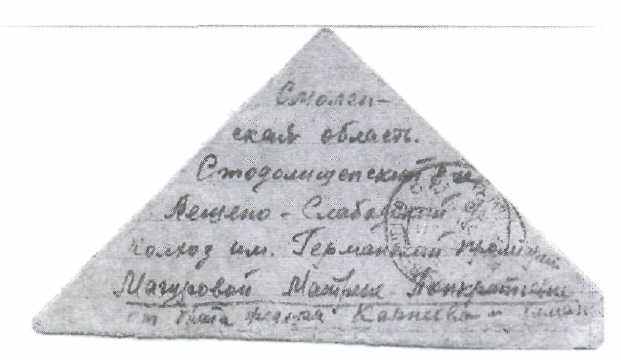 Смолен-
ская область.
Стодолищенский р-н
Лещено-Слабодский
колхоз им. Германской
Магуровой Матрене Панкратьевне
от брата Карнеева